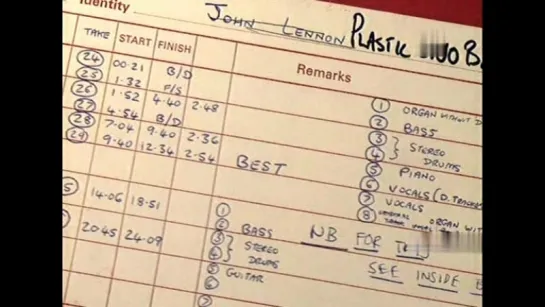 Identity JOHN LENNON PLASTIC
TAKE START FINISH Remarks
24 00·21 B/D
25 1·32 F/S
26 1·52 4·40 2·48
27 4·54 B/D
28 7·04 9·40 2·36
29 9·40 12·34 2·54 BEST
1 ORGAN WITHOUT
2 BASS
3 } STEREO
4 } DRUMS
5 PIANO
6 VOCALS (D. TRACKED
7 VOCALS
8 ORGAN WITH
5 14·06 18·51
6 20·45 24·09
1
2 BASS
3 } STEREO
4 } DRUMS
5 GUITAR
6
7
NB FOR
SEE INSIDE